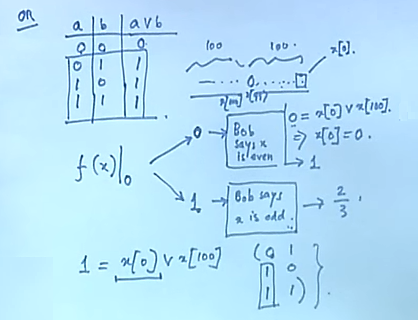 OR
a b a∨b
0 0 0
0 1 1
1 0 1
1 1 1
100 100
x[0].
...... 0 .......
x[100] x[99]
f(x)|0
0 → Bob says x is even
0 = x[0] ∨ x[100].
⇒ x[0] = 0.
→ 1
1 → Bob says x is odd.
→ 2/3.
1 = x[0] ∨ x[100]
(0 1
1 0
1 1)